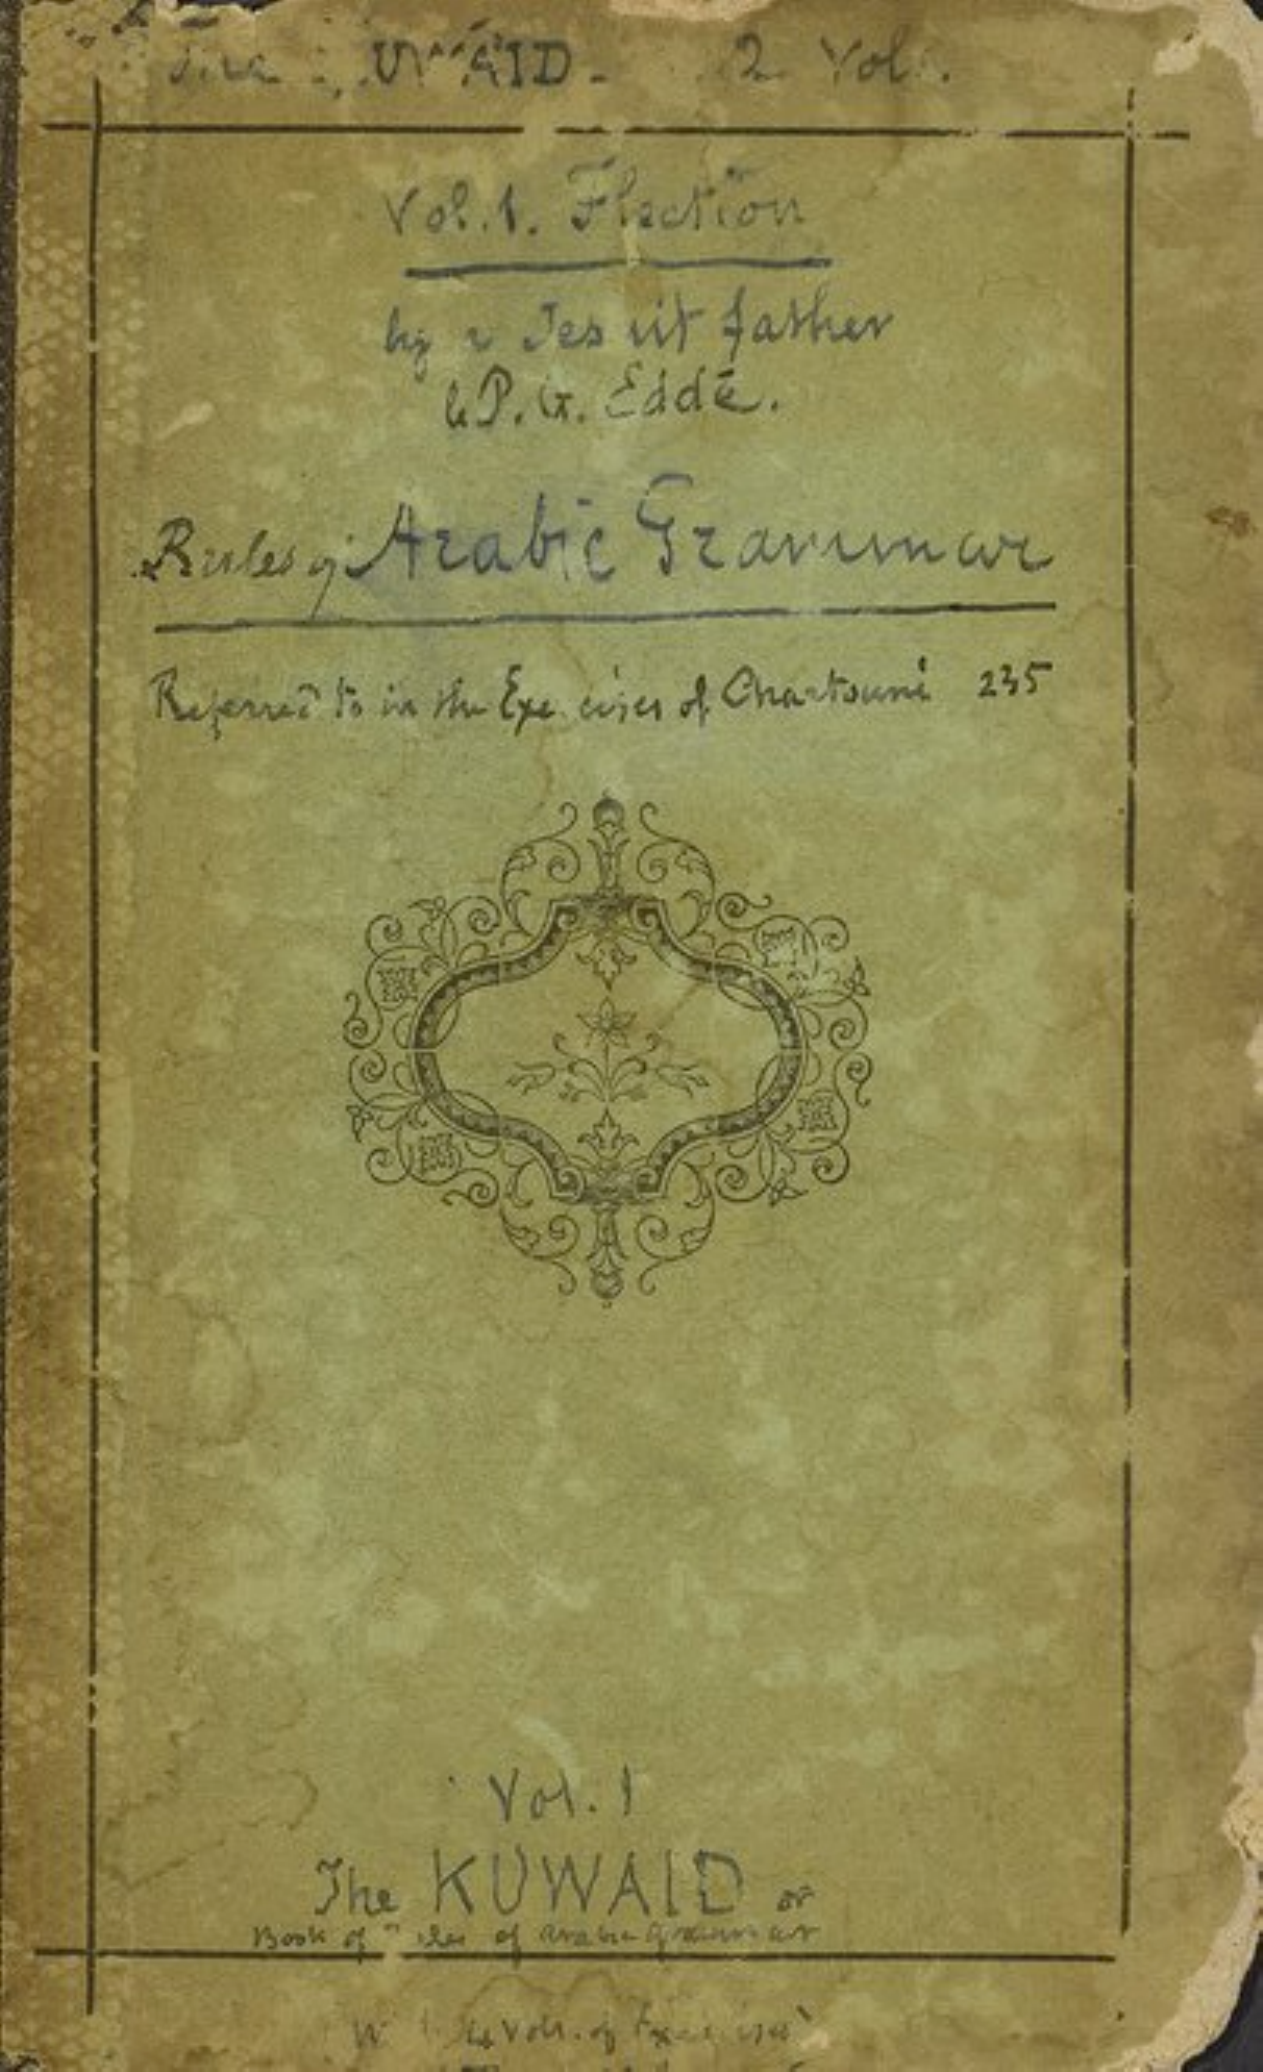 2 Vol.
Vol. 1. Flection
by a Jesuit father
le P. G. Eddé.
Rules of Arabic Grammar
Referred to in the Exercises of Chartouni 235
Vol. 1
The KUWAID or
Book of Rules of Arabic Grammar
Vols. of Exercises